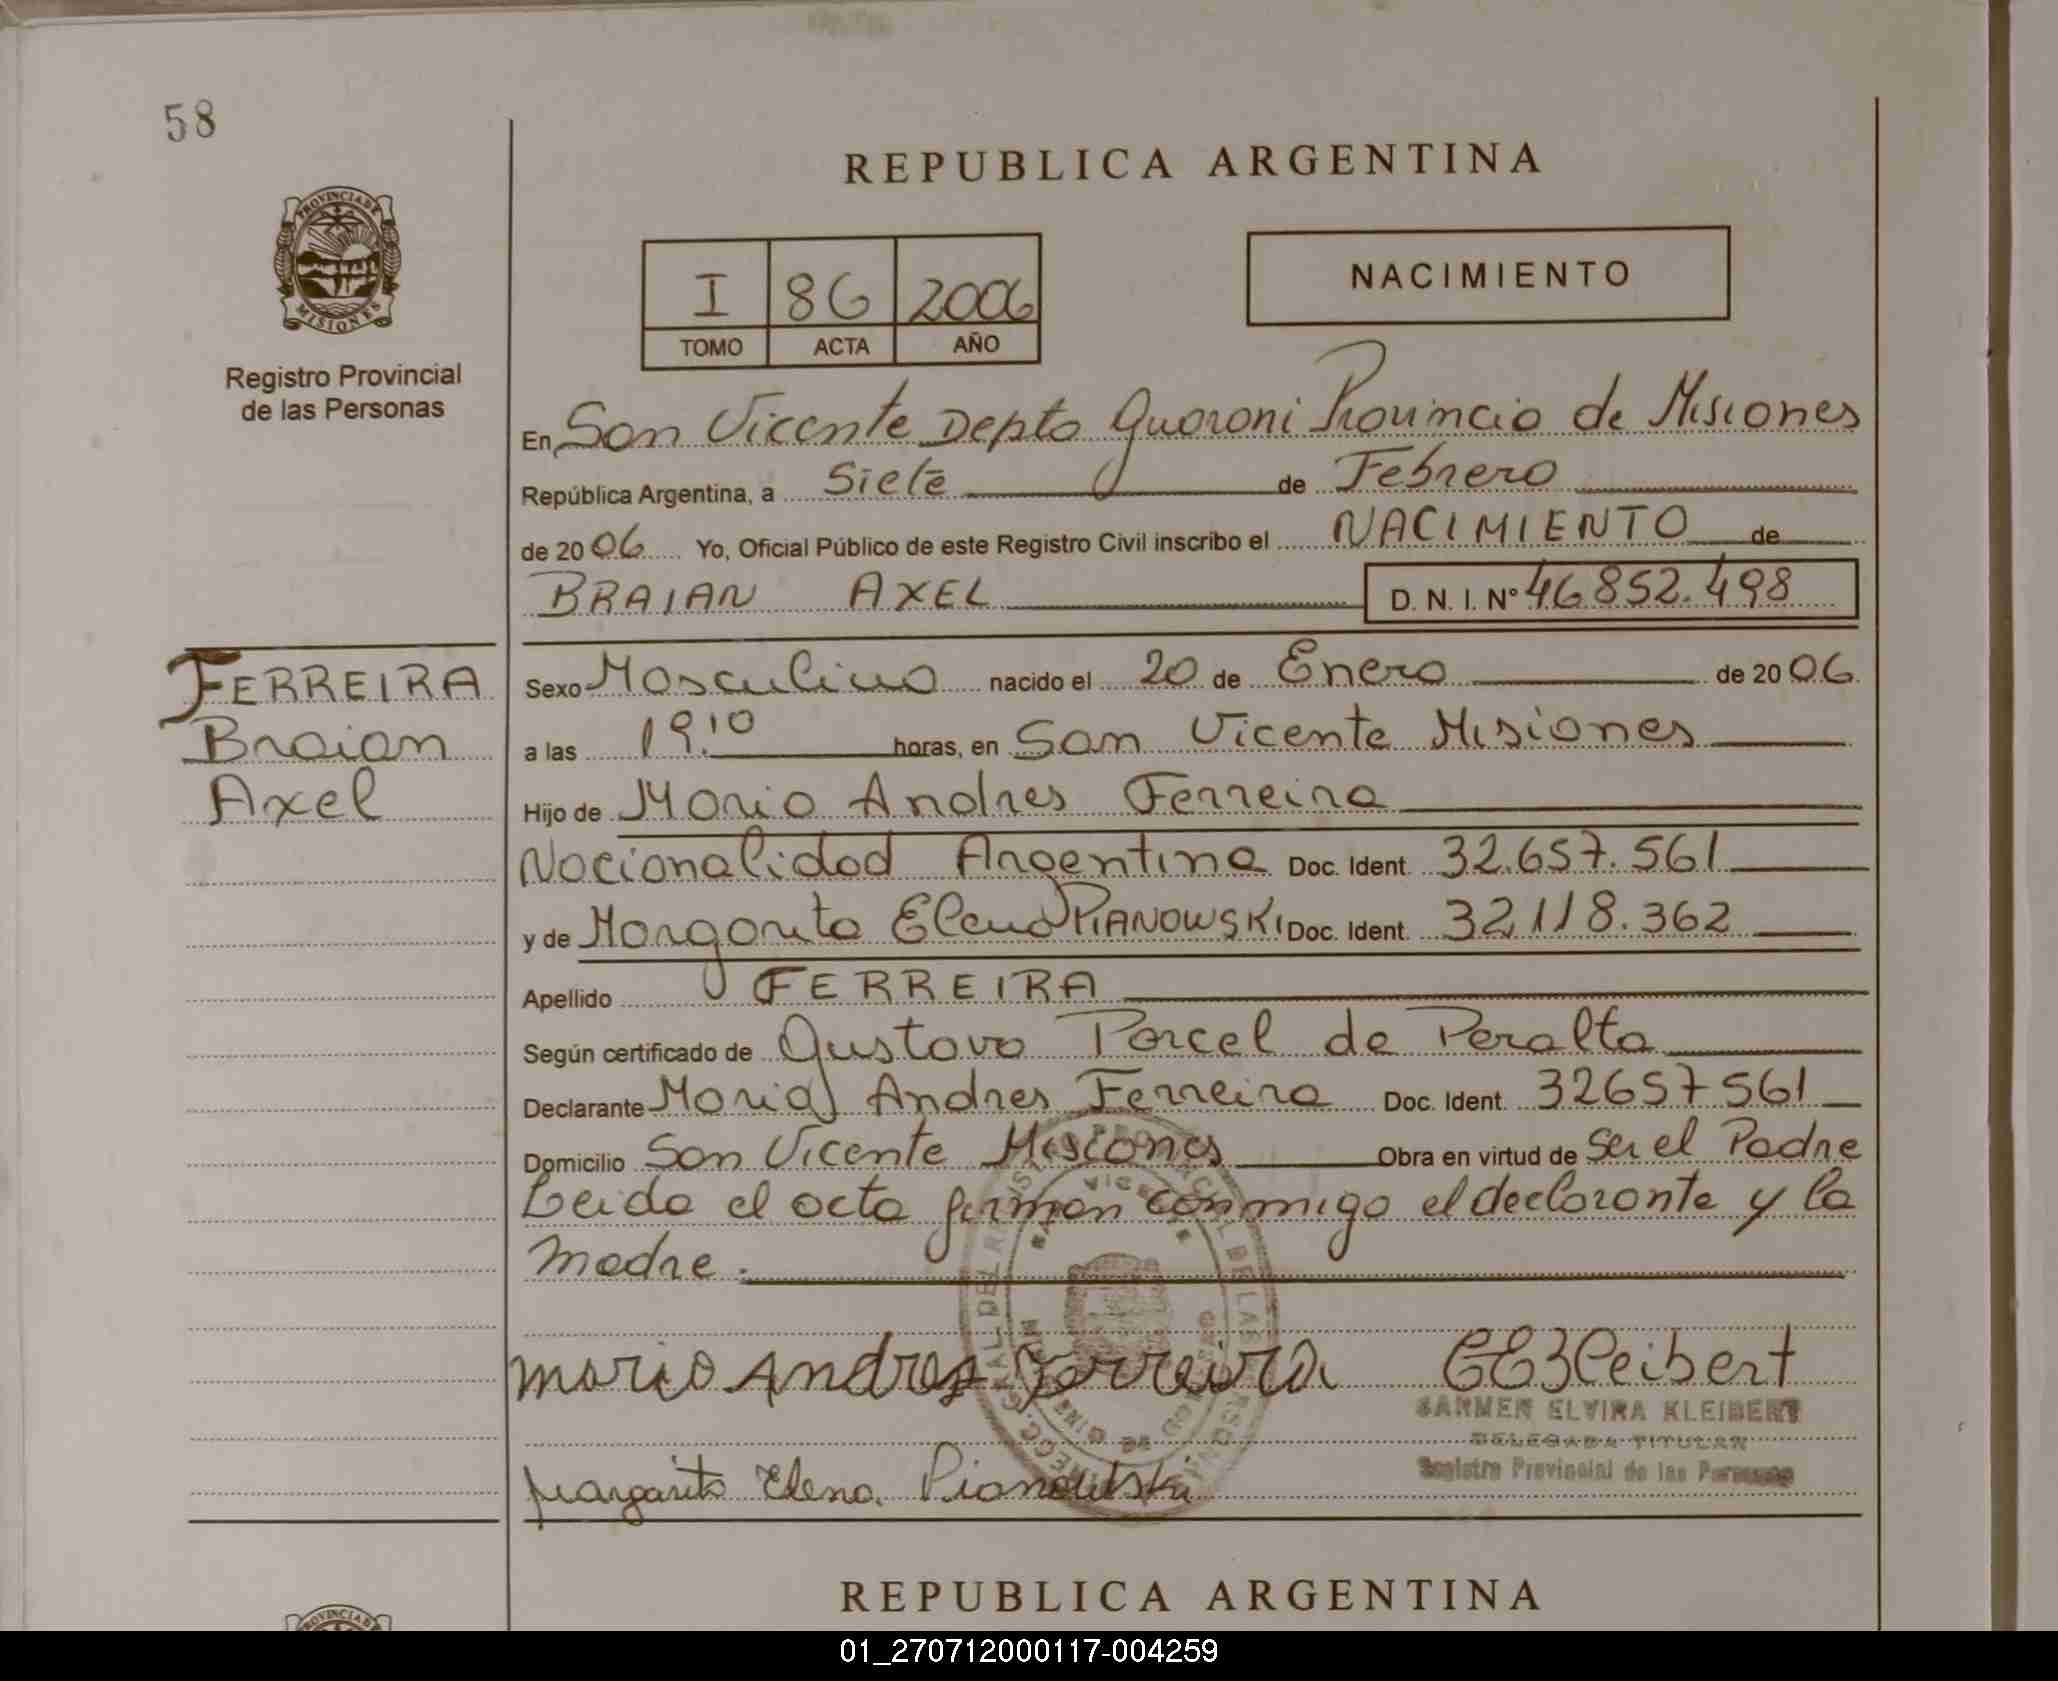 58
REPUBLICA ARGENTINA
PROVINCIA DE
MISIONES
I 86 2006
TOMO ACTA AÑO
NACIMIENTO
Registro Provincial
de las Personas
En San Vicente Depto Guarani Provincia de Misiones
República Argentina, a Siete de Febrero
de 2006 Yo, Oficial Público de este Registro Civil inscribo el NACIMIENTO de
BRAIAN AXEL D. N. I. Nº 46852.498
FERREIRA
Braian
Axel
Sexo Masculino nacido el 20 de Enero de 2006
a las 19.10 horas, en San Vicente Misiones
Hijo de Mario Andres Ferreira
Nacionalidad Argentina Doc. Ident. 32.657.561
y de Margarita Elena PIANOWSKI Doc. Ident. 32.118.362
Apellido FERREIRA
Según certificado de Gustavo Porcel de Peralta
Declarante Mario Andres Ferreira Doc. Ident. 32657561
Domicilio San Vicente Misiones Obra en virtud de Ser el Padre
Leida el acta firman conmigo el declarante y la
madre.
Mario Andres Ferreira CEKleibert
CARMEN ELVIRA KLEIBERT
DELEGADA TITULAR
Registro Provincial de las Personas
Margarita Elena Pianowski
REPUBLICA ARGENTINA
PROVINCIA DE
01_270712000117-004259